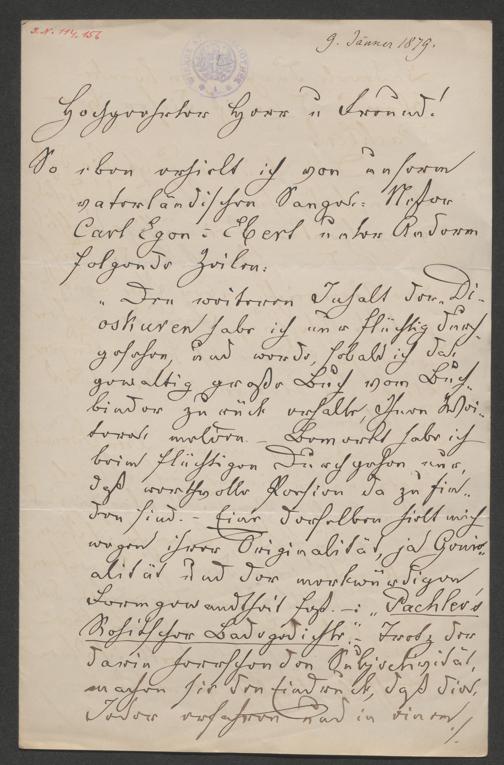 I.N. 114.156
9. Jänner 1879.
Hochgeehrter Herr u Freund!
So eben erhielt ich von unserm
vaterländischen Sanges-Nestor
Carl Egon = Ebert unter Anderm
folgende Zeilen:
"Den weiteren Inhalt der „Di-
oskuren habe ich nur flüchtig durch
gesehen, und werde, sobald ich das
gewaltig große Buch vom Buch-
binder zurück erhalte, Ihnen Wei-
teres melden. – Bemerkt habe ich
beim flüchtigen Durchgehen nur,
daß werthvolle Poesien da zu fin-
den sind. – Eine derselben hielt mich
wegen ihrer Originalität, ja Genia-
lität und der merkwürdigen
Formgewandtheit fest. –: „Pachler's
Rohitscher Badegedichte". – Trotz der
darin herrschenden Subjectivität,
machen sie den Eindruck, daß dies
Jeder erfahren und in einem